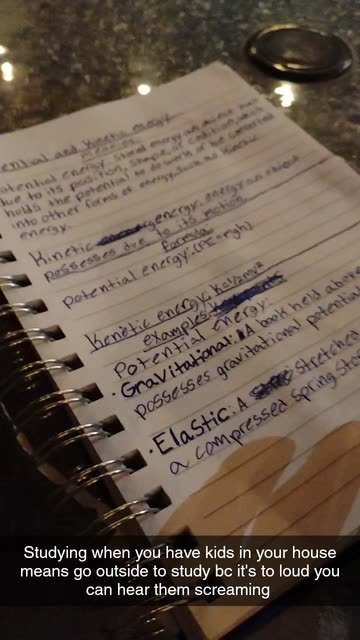 ential and kinetic energy
potential energy: stored energy an object has
due to its position, shape, or condition, which
holds the potential to do work or be converted
into other forms of energy, such as kinetic
energy.
Kinetic energy: energy an object
possesses due to its motion
Formula
potential energy: (PE=mgh)
Kenetic energy: KE=1/2mv²
examples
potential energy:
• Gravitational: A book held above
possesses gravitational potential
• Elastic: A stretched
a compressed spring sto
Studying when you have kids in your house
means go outside to study bc it's to loud you
can hear them screaming